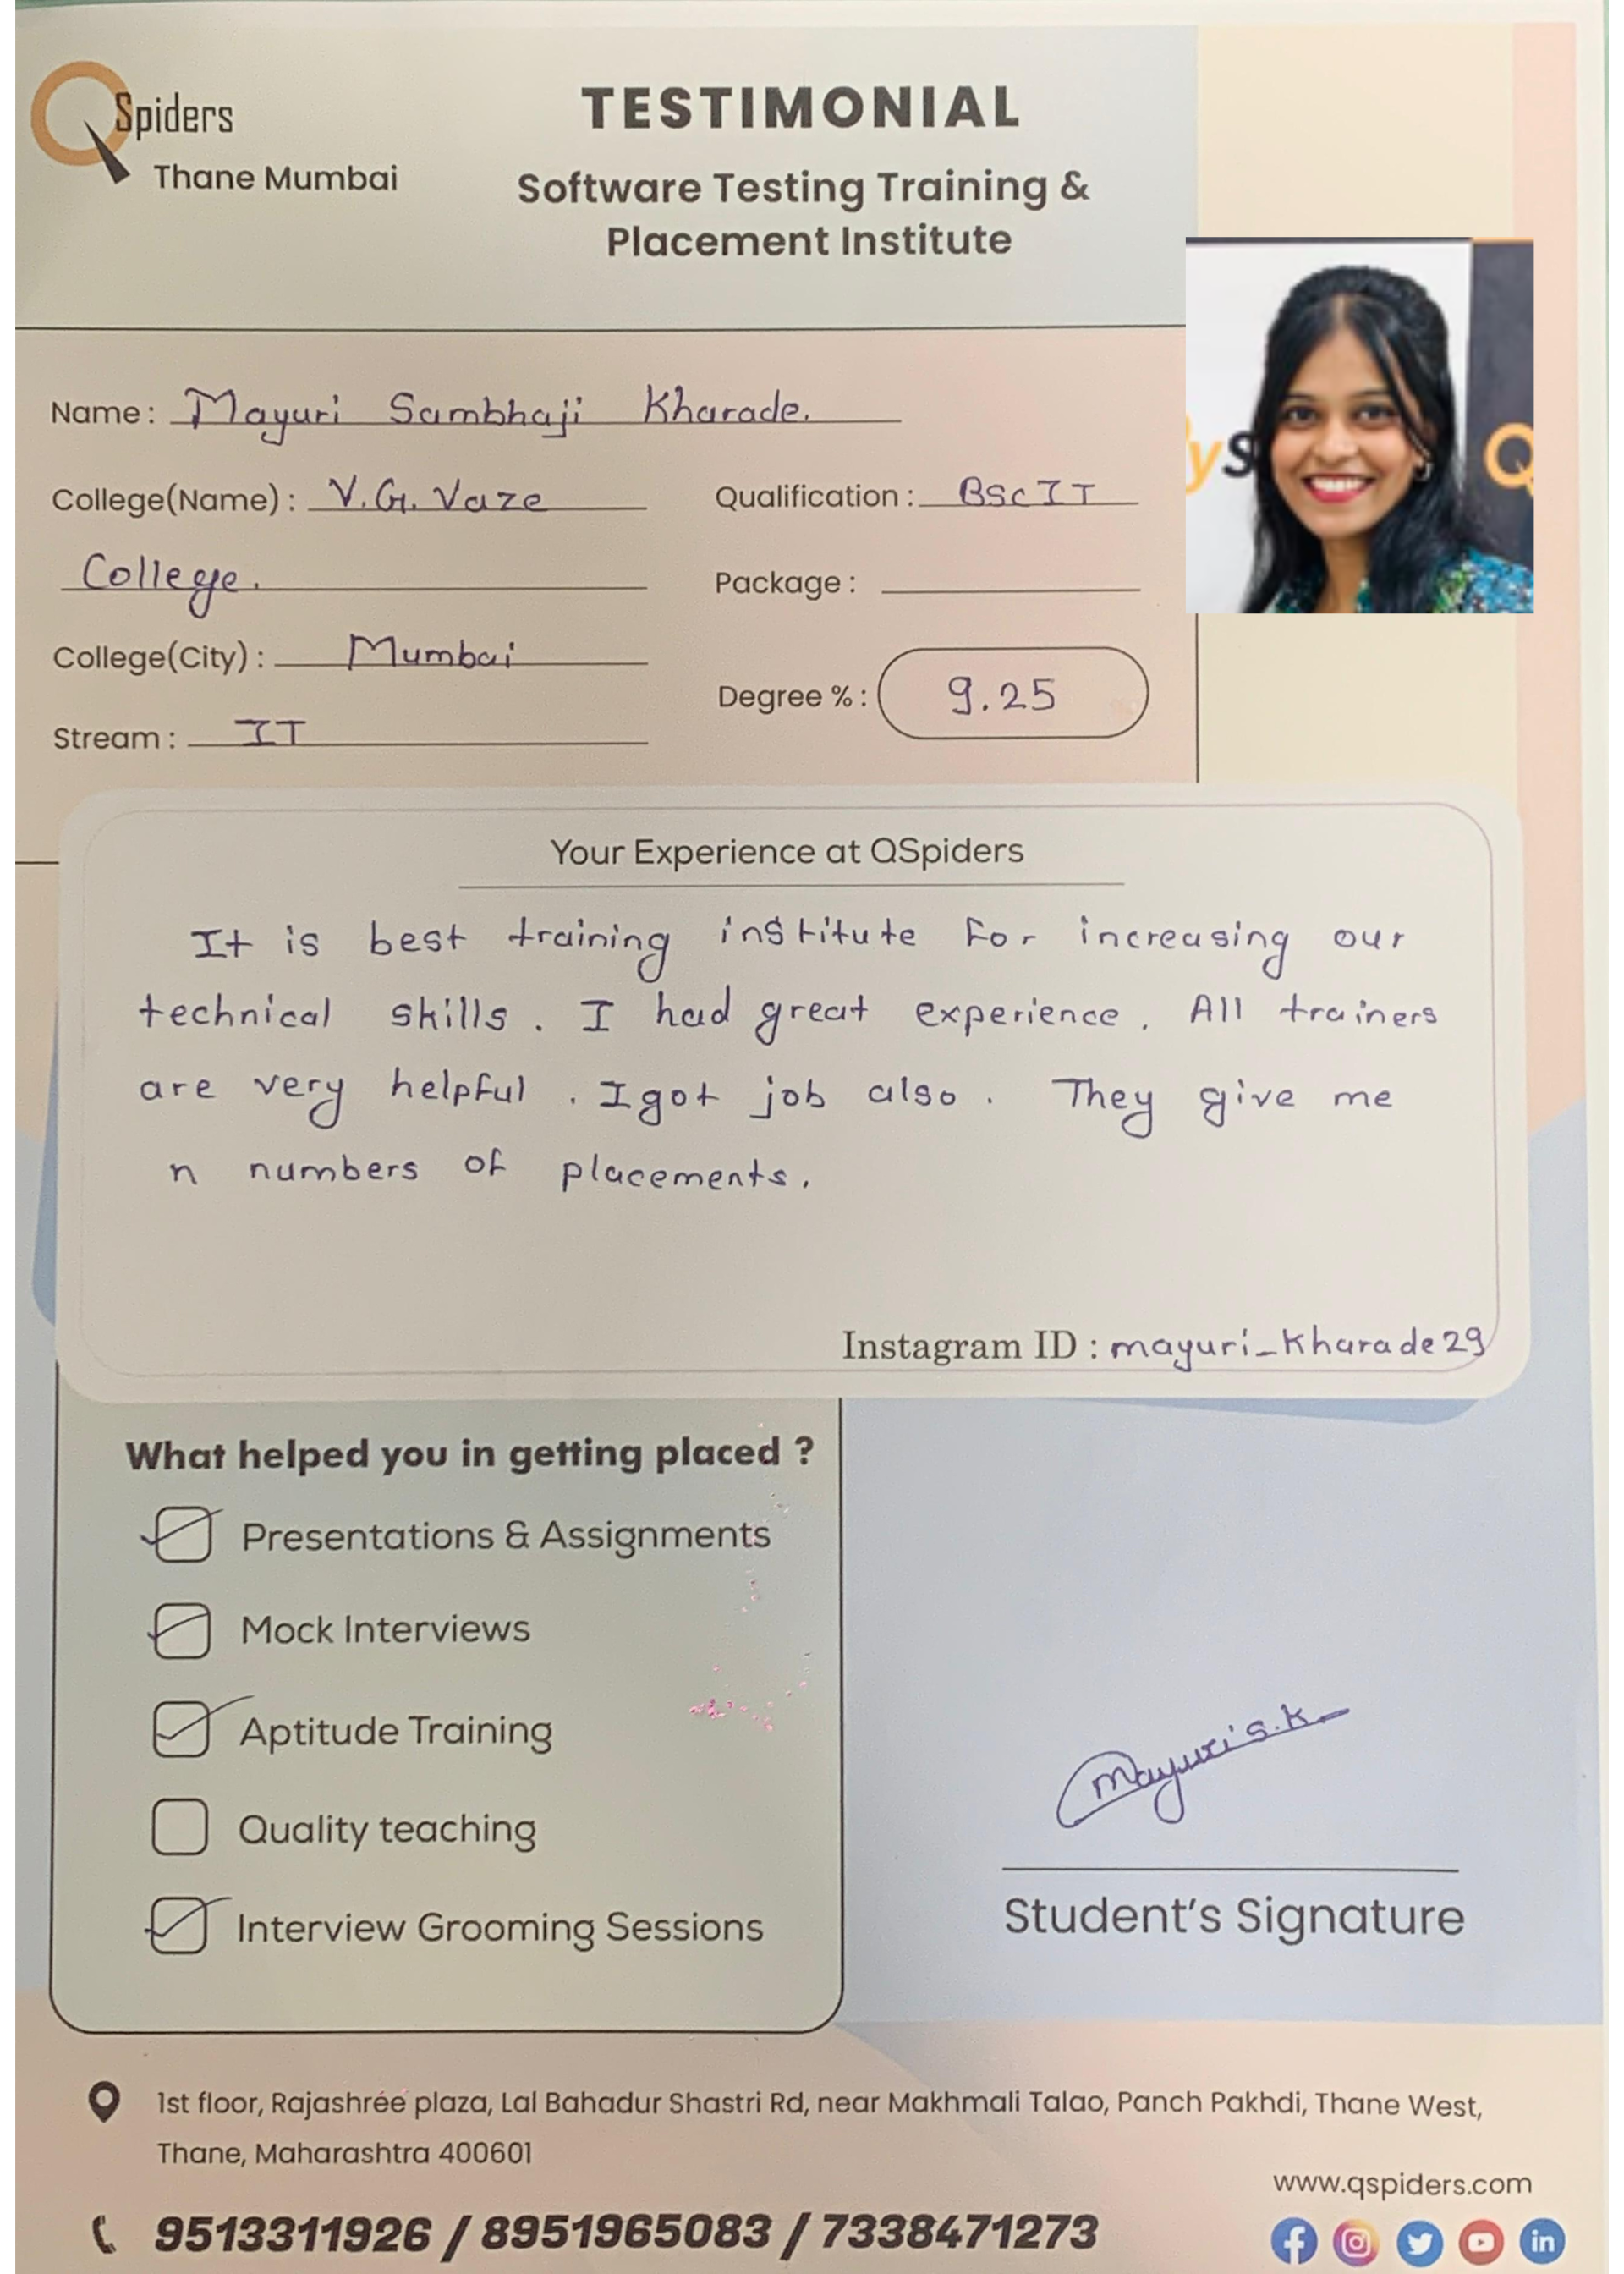 QSpiders
Thane Mumbai
TESTIMONIAL
Software Testing Training &
Placement Institute
yS
Q
Name : Mayuri Sambhaji Kharade.
College(Name) : V.G. Vaze
College.
Qualification : BSc IT
Package :
College(City) : Mumbai
Degree % : 9.25
Stream : IT
Your Experience at QSpiders
It is best training institute for increasing our
technical skills. I had great experience. All trainers
are very helpful. I got job also. They give me
n numbers of placements.
Instagram ID : mayuri_kharade29
What helped you in getting placed ?
Presentations & Assignments
Mock Interviews
Aptitude Training
Quality teaching
Interview Grooming Sessions
Mayuri S.K
Student's Signature
1st floor, Rajashree plaza, Lal Bahadur Shastri Rd, near Makhmali Talao, Panch Pakhdi, Thane West,
Thane, Maharashtra 400601
www.qspiders.com
9513311926 / 8951965083 / 7338471273